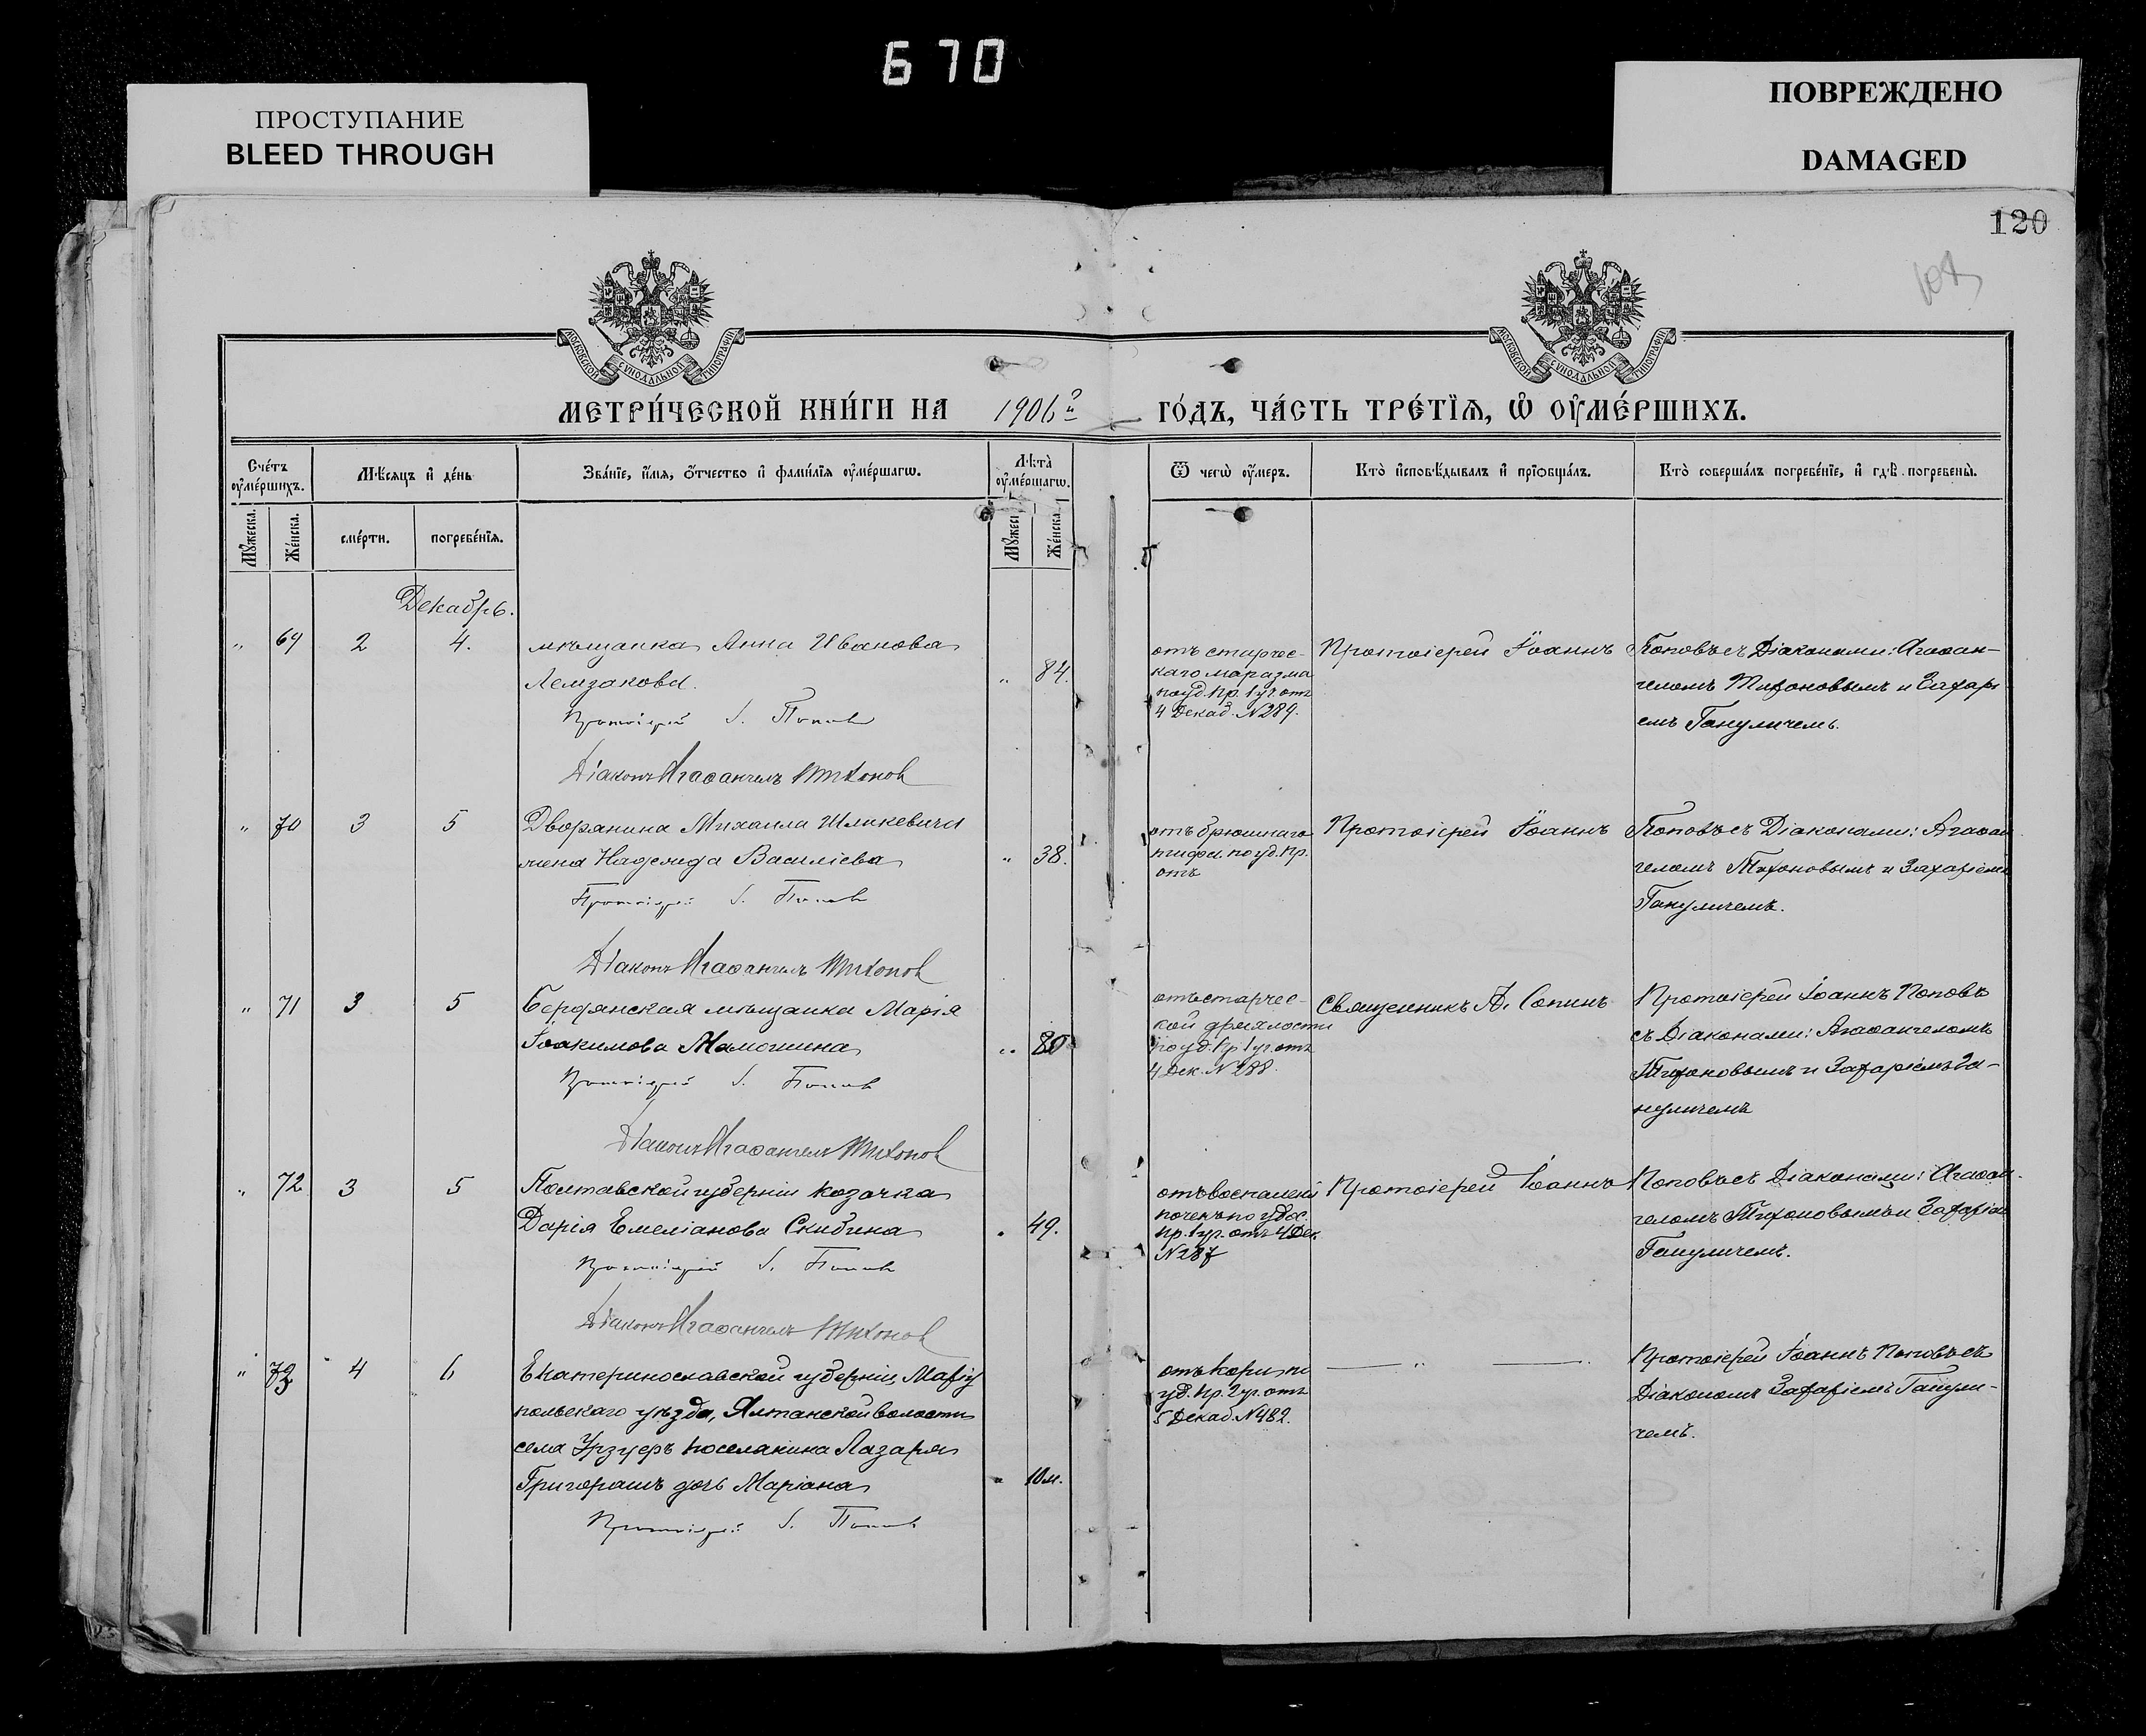 670
ПРОСТУПАНИЕ
BLEED THROUGH
ПОВРЕЖДЕНО
DAMAGED
120
МОСКОВСКОЙ СУНОДАЛЬНОЙ ТИПОГРАФІИ
МОСКОВСКОЙ СУНОДАЛЬНОЙ ТИПОГРАФІИ
МЕТРИ́ЧЕСКОЙ КНИ́ГИ НА 1906 й ГО́ДЪ, ЧА́СТЬ ТРЕ́ТЇѦ, Ѡ ОУ҆МЕ́РШИХЪ.
Сче́тъ оу҆ме́ршихъ.
Мѣ́сяцъ и҆ де́нь
Зва́нїе, и҆́мя, ѻ҆́тчество и҆ фами́лїя оу҆ме́ршагѡ.
Лѣта̀ оу҆ме́ршагѡ.
Ѿ чегѡ̀ оу҆́меръ.
Кто̀ и҆сповѣ́дывалъ и҆ прїѻбща́лъ.
Кто̀ соверша́лъ погребе́нїе, и҆ гдѣ̀ погребены̀.
Мꙋ́жеска.
Же́нска.
сме́рти.
погребе́нїя.
Мꙋ́жеск
Же́нска.
Декабрь.
" 69 2 4. мѣщанка Анна Иванова
Лемзакова. " 84.
Протоіерей І. Поповъ
Діаконъ Агаѳангелъ Тихонов
отъ старчес-
каго маразма
по уд. пр. 1 уч. отъ
4 Декаб. N 289.
Протоіерей Іоаннъ Поповъ съ Діаконами: Агаѳан-
геломъ Тихоновымъ и Захарі
емъ Гануличемъ.
" 70 3 5 Дворянина Михаила Шликевича
жена Надежда Василіева " 38.
Протоіерей І. Поповъ
Діаконъ Агаѳангелъ Тихонов
отъ брюшнаго
тифа по уд. пр.
отъ
Протоіерей Іоаннъ Поповъ съ Діаконами: Агаѳан
геломъ Тихоновымъ и Захаріемъ
Гануличемъ.
" 71 3 5 Бердянская мѣщанка Марія
Іоакимова Мамошина " 80
Протоіерей І. Поповъ
Діаконъ Агаѳангелъ Тихонов
отъ старчес-
кой дряхлости
по уд. пр. 1 уч. отъ
4 Дек. N 288.
Священникъ А. Сопинъ
Протоіерей Іоаннъ Поповъ
съ Діаконами: Агаѳангеломъ
Тихоновымъ и Захаріемъ Га-
нуличемъ
" 72 3 5 Полтавской губерніи козачка
Дарія Емеліанова Скибина " 49.
Протоіерей І. Поповъ
Діаконъ Агаѳангелъ Тихонов
отъ воспаленія
почекъ по удос.
пр. 1 уч. отъ 4 Дек.
N 287
Протоіерей Іоаннъ Поповъ съ Діаконами: Агаѳан-
геломъ Тихоновымъ и Захаріем
Гануличемъ.
" 73 4 6 Екатеринославской губерніи, Маріу
польскаго уѣзда, Ялтанской волости
села Урзуфъ поселянина Лазаря
Григорашъ дочь Маріана " 10 м.
Протоіерей І. Поповъ
отъ кори по
уд. пр. 2 уч. отъ
5 Декаб. N 482.
— " —
Протоіерей Іоаннъ Поповъ съ
Діакономъ ЗахаріемъГанули-
чемъ.